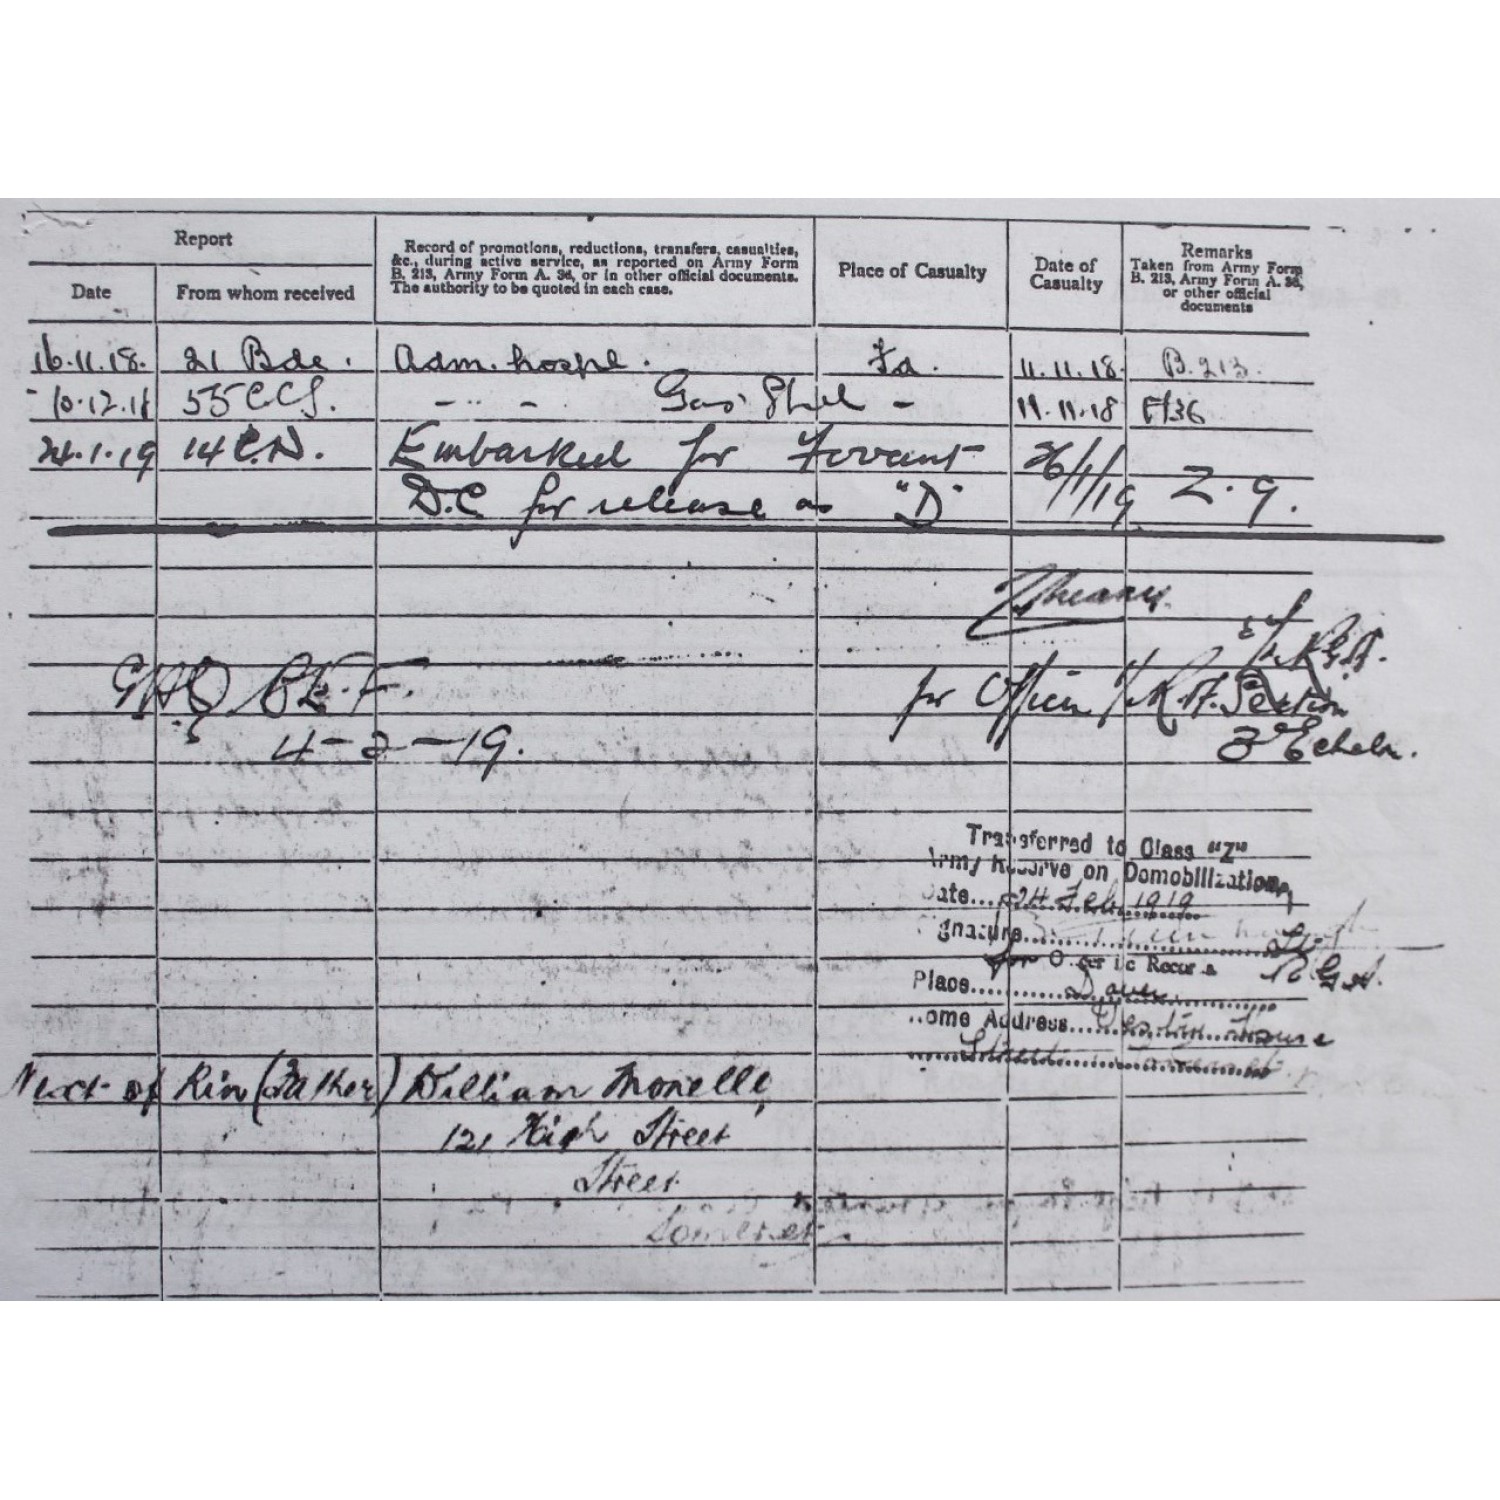 Report
Date
From whom received
Record of promotions, reductions, transfers, casualties,
&c., during active service, as reported on Army Form
B. 213, Army Form A. 36, or in other official documents.
The authority to be quoted in each case.
Place of Casualty
Date of
Casualty
Remarks
Taken from Army Form
B. 213, Army Form A. 36,
or other official
documents
16.11.18. 21 Bde. Adm. hospl. Fd. 11.11.18. B.213.
10.12.18 55 CCS. - " - Gas Shell - 11.11.18 A36
24.1.19 14 C.D. Embarked for Fovant 26/1/19 Z.9.
D.C for release as "D"
Lt RGA.
GHQ B.E.F. for Officer i/c R.A. Section
4-2-19. 3rd Echelon.
Transferred to Class "Z"
Army Reserve on Demobilization,
Date... 24 Feb. 1919
Signature...... Lt
for Officer i/c Records R.G.A.
Place...... Dover
Home Address... House
Street Somerset
Next of Kin (Father) William Morelle,
121 High Street
Street
Somerset